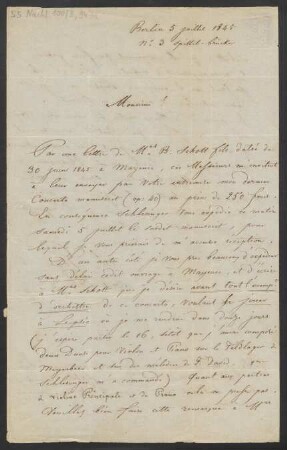 55 Nachl 100/B,
Berlin 5 juillet 1845
N° 3 Spittel-brücke
Monsieur!
Par une lettre de Mrs B. Schott fils, datée du
30 juin 1845 à Mayence, ces Messieurs m'invitent
à leur envoyer par votre entremise mon dernier
Concerto manuscrit (op: 40) au prix de 250 francs.
En conséquence Schlesinger vous expédie ce matin
samedi 5 juillet le susdit manuscrit, pour
lequel je vous prierai de m'accuser réception,
D'un autre côté je vous prie beaucoup d'expédier
sans délai cet ouvrage à Mayence, et d'écrire
à Mrs Schott que je désire avant tout
d'orchestre de ce concerto, voulant le jouer
à Leipzig où je me rendrai dans douze jours
(je compte partir le 16, sitôt que j'aurai
deux Duos pour Violon et Piano sur le Feldlager de
Meyerbeer et sur des mélodies de F. David, que
Schlesinger m'a commandés.) Quant aux parties
de Violon Principale et de Piano cela ne presse pas.
Veuillez bien faire cette remarque à